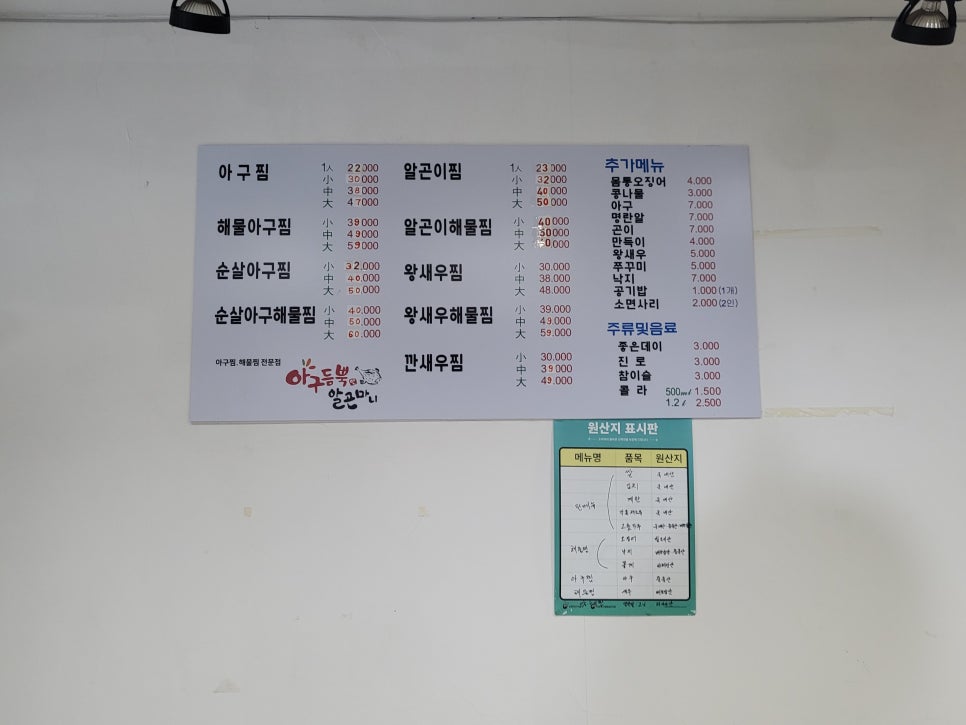 아구찜
1人 22.000
小 30.000
中 38.000
大 47.000
해물아구찜
小 39.000
中 49.000
大 59.000
순살아구찜
小 32.000
中 40.000
大 50.000
순살아구해물찜
小 40.000
中 50.000
大 60.000
아구찜.해물찜 전문점
아구듬뿍
알곤마니
알곤이찜
1人 23.000
小 32.000
中 40.000
大 50.000
알곤이해물찜
小 40.000
中 50.000
大 60.000
왕새우찜
小 30.000
中 38.000
大 48.000
왕새우해물찜
小 39.000
中 49.000
大 59.000
깐새우찜
小 30.000
中 39.000
大 49.000
추가메뉴
몸통오징어 4.000
콩나물 3.000
아구 7.000
명란알 7.000
곤이 7.000
만득이 4.000
왕새우 5.000
쭈꾸미 5.000
낙지 7.000
공기밥 1.000 (1개)
소면사리 2.000 (2인)
주류및음료
좋은데이 3.000
진로 3.000
참이슬 3.000
콜라 500ml 1.500
1.2ℓ 2.500
원산지 표시판
메뉴명 품목 원산지
쌀 국내산
김치 국내산
계란 국내산
고춧가루
오징어
낙지
꽃게
아구찜 아구 중국산
새우